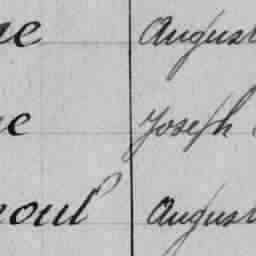 ne August
ne Joseph
noul August